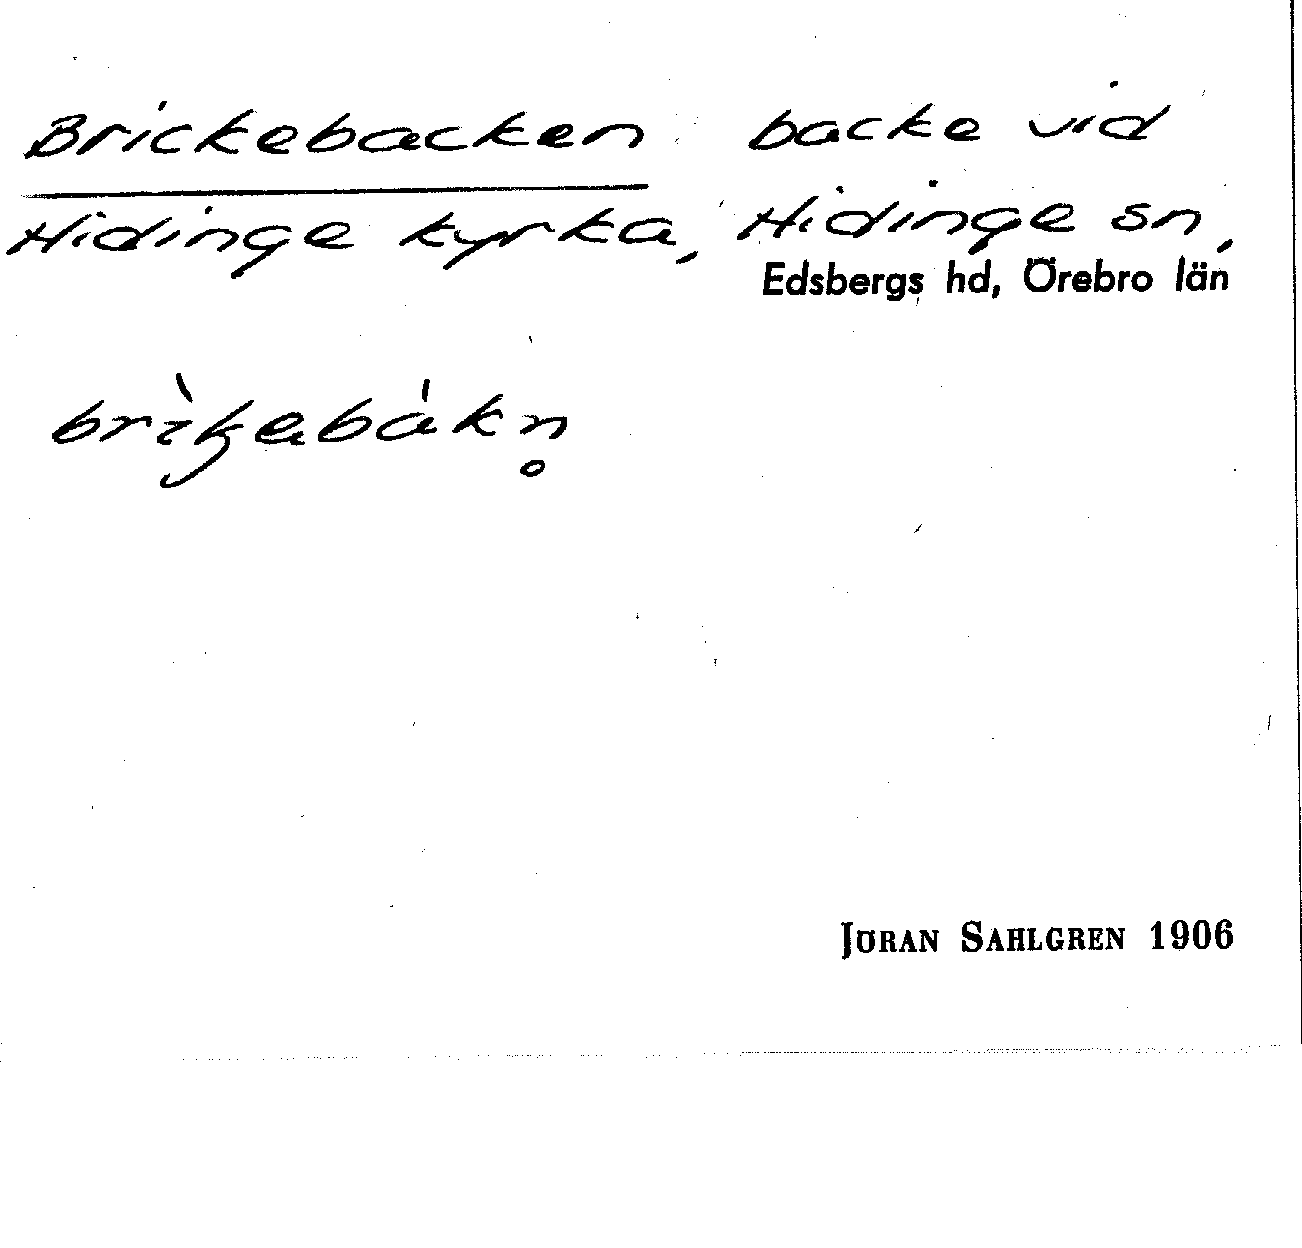 Brickebacken backe vid
Hidinge kyrka, Hidinge sn,
Edsbergs hd, Örebro län
brìkebákn̥
JÖRAN SAHLGREN 1906